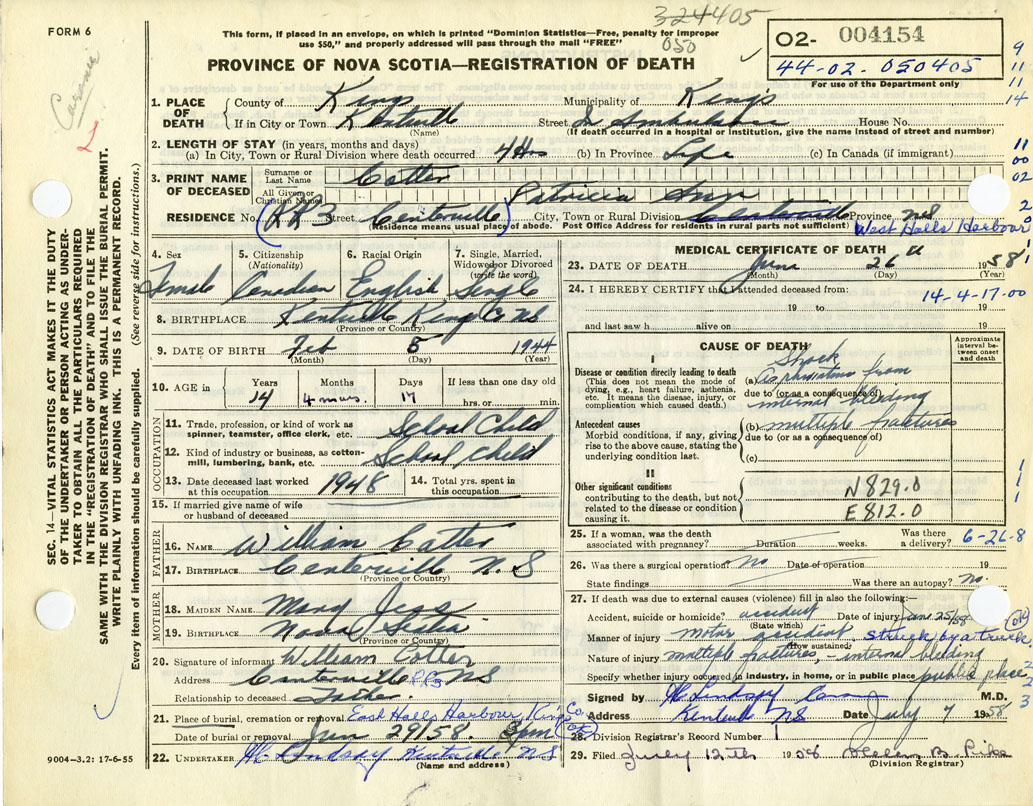 FORM 6
324405
050
This form, if placed in an envelope, on which is printed "Dominion Statistics—Free, penalty for improper
use $50," and properly addressed will pass through the mail "FREE"
PROVINCE OF NOVA SCOTIA—REGISTRATION OF DEATH
02- 004154
44-02-050405
For use of the Department only
9
11
11
14
Coroner
SEC. 14—VITAL STATISTICS ACT MAKES IT THE DUTY
OF THE UNDERTAKER OR PERSON ACTING AS UNDER-
TAKER TO OBTAIN ALL THE PARTICULARS REQUIRED
IN THE "REGISTRATION OF DEATH" AND TO FILE THE
SAME WITH THE DIVISION REGISTRAR WHO SHALL ISSUE THE BURIAL PERMIT.
WRITE PLAINLY WITH UNFADING INK. THIS IS A PERMANENT RECORD.
Every item of information should be carefully supplied. (See reverse side for instructions.)
1. PLACE OF DEATH
County of Kings Municipality of King's
If in City or Town Kentville Street In Ambulance House No.
(Name) (If death occurred in a hospital or institution, give the name instead of street and number)
2. LENGTH OF STAY (in years, months and days)
(a) In City, Town or Rural Division where death occurred 4 Hrs (b) In Province Life (c) In Canada (if immigrant)
11
00
02
3. PRINT NAME OF DECEASED
Surname or Last Name Cotter
All Given or Christian Names Patricia Ann
RESIDENCE No. RR3 Street Centerville City, Town or Rural Division Centerville Province NS
(Residence means usual place of abode. Post Office Address for residents in rural parts not sufficient) West Halls Harbour
2
0
4. Sex
Female
5. Citizenship (Nationality)
Canadian
6. Racial Origin
English
7. Single, Married, Widowed or Divorced (write the word)
Single
8. BIRTHPLACE Kentville Kings Co NS
(Province or Country)
9. DATE OF BIRTH Feb 5 1944
(Month) (Day) (Year)
10. AGE in Years Months Days If less than one day old
14 4 mos. 17 hrs. or min.
OCCUPATION
11. Trade, profession, or kind of work as spinner, teamster, office clerk, etc. School Child
12. Kind of industry or business, as cotton-mill, lumbering, bank, etc. School Child
13. Date deceased last worked at this occupation 1948 14. Total yrs. spent in this occupation
15. If married give name of wife or husband of deceased
FATHER
16. NAME William Cotter
17. BIRTHPLACE Centerville N.S
(Province or Country)
MOTHER
18. MAIDEN NAME Mary Jess
19. BIRTHPLACE Nova Scotia
(Province or Country)
20. Signature of informant William Cotter
Address Centerville RR3 NS
Relationship to deceased Father
21. Place of burial, cremation or removal East Halls Harbour Kings Co
Date of burial or removal Jun 29/58
22. UNDERTAKER Kentville NS
(Name and address)
9004-3.2: 17-6-55
MEDICAL CERTIFICATE OF DEATH
23. DATE OF DEATH June 26th 1958
(Month) (Day) (Year)
24. I HEREBY CERTIFY that I attended deceased from: 14-4-17.00
19 to 19
and last saw h alive on 19
CAUSE OF DEATH
Approximate interval between onset and death
I
Disease or condition directly leading to death
(This does not mean the mode of dying, e.g., heart failure, asthenia, etc. It means the disease, injury, or complication which caused death.)
(a) Shock
from
due to (or as a consequence of)
internal bleeding
Antecedent causes
Morbid conditions, if any, giving rise to the above cause, stating the underlying condition last.
(b) multiple fractures
due to (or as a consequence of)
(c)
II
Other significant conditions
contributing to the death, but not related to the disease or condition causing it.
N829.0
E812.0
25. If a woman, was the death associated with pregnancy? Duration weeks. Was there a delivery? 6-26-8
26. Was there a surgical operation? no Date of operation 19
State findings Was there an autopsy? no.
27. If death was due to external causes (violence) fill in also the following:—
Accident, suicide or homicide? accident Date of injury June 25/58
(State which)
Manner of injury motor accident struck by a truck
(How sustained)
Nature of injury multiple fractures, - internal bleeding
Specify whether injury occurred in industry, in home, or in public place public place
Signed by M.D.
Address Kentville NS Date July 7 1958.
28. Division Registrar's Record Number 1
29. Filed July 12th 1958
(Division Registrar)